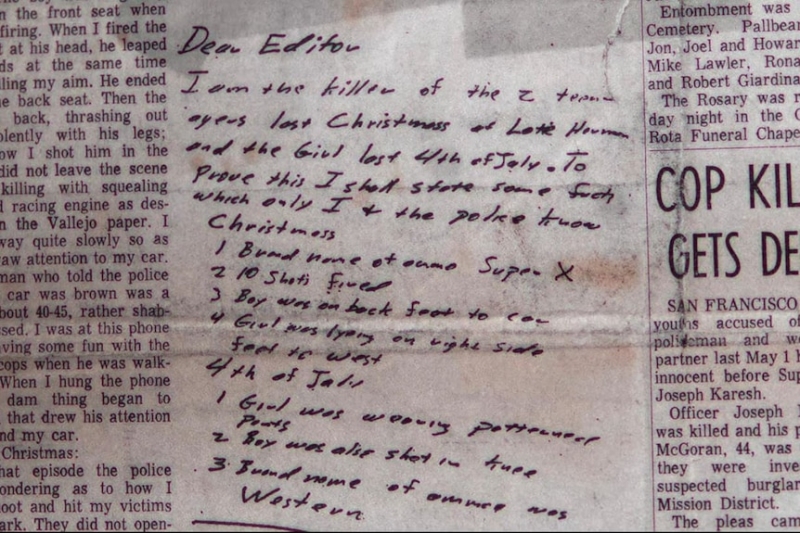 n the front seat when
firing. When I fired the
t at his head, he leaped
ds at the same time
ling my aim. He ended
e back seat. Then the
back, thrashing out
olently with his legs;
ow I shot him in the
did not leave the scene
killing with squealing
d racing engine as des-
n the Vallejo paper. I
way quite slowly so as
raw attention to my car.
man who told the police
car was brown was a
bout 40-45, rather shab-
ssed. I was at this phone
ving some fun with the
cops when he was walk-
When I hung the phone
dam thing began to
that drew his attention
nd my car.
Christmas:
hat episode the police
ondering as to how I
oot and hit my victims
ark. They did not open-
Dear Editor
I am the killer of the 2 teen-
agers last Christmass at Lake Herman
and the Girl last 4th of July. To
Prove this I shall state some facts
which only I + the police know
Christmass
1 Brand name of ammo Super X
2 10 Shots fired
3 Boy was on back feet to car
4 Girl was lyeing on right side
feet to west
4th of July
1 Girl was wearing patterned
pants
2 Boy was also shot in knee
3 Brand name of ammo was
Western
Entombment was
Cemetery. Pallbear
Jon, Joel and Howar
Mike Lawler, Rona
and Robert Giardina
The Rosary was r
day night in the C
Rota Funeral Chape
COP KIL
GETS DE
SAN FRANCISCO
youths accused of
policeman and wo
partner last May 1 h
innocent before Sup
Joseph Karesh.
Officer Joseph
was killed and his p
McGoran, 44, was
they were inve
suspected burglar
Mission District.
The pleas cam